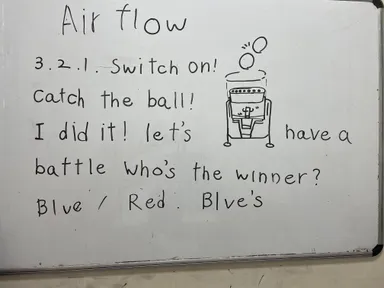 Air flow
3.2.1. Switch on!
Catch the ball!
I did it! let's have a
battle who's the winner?
Blve / Red. Blve's